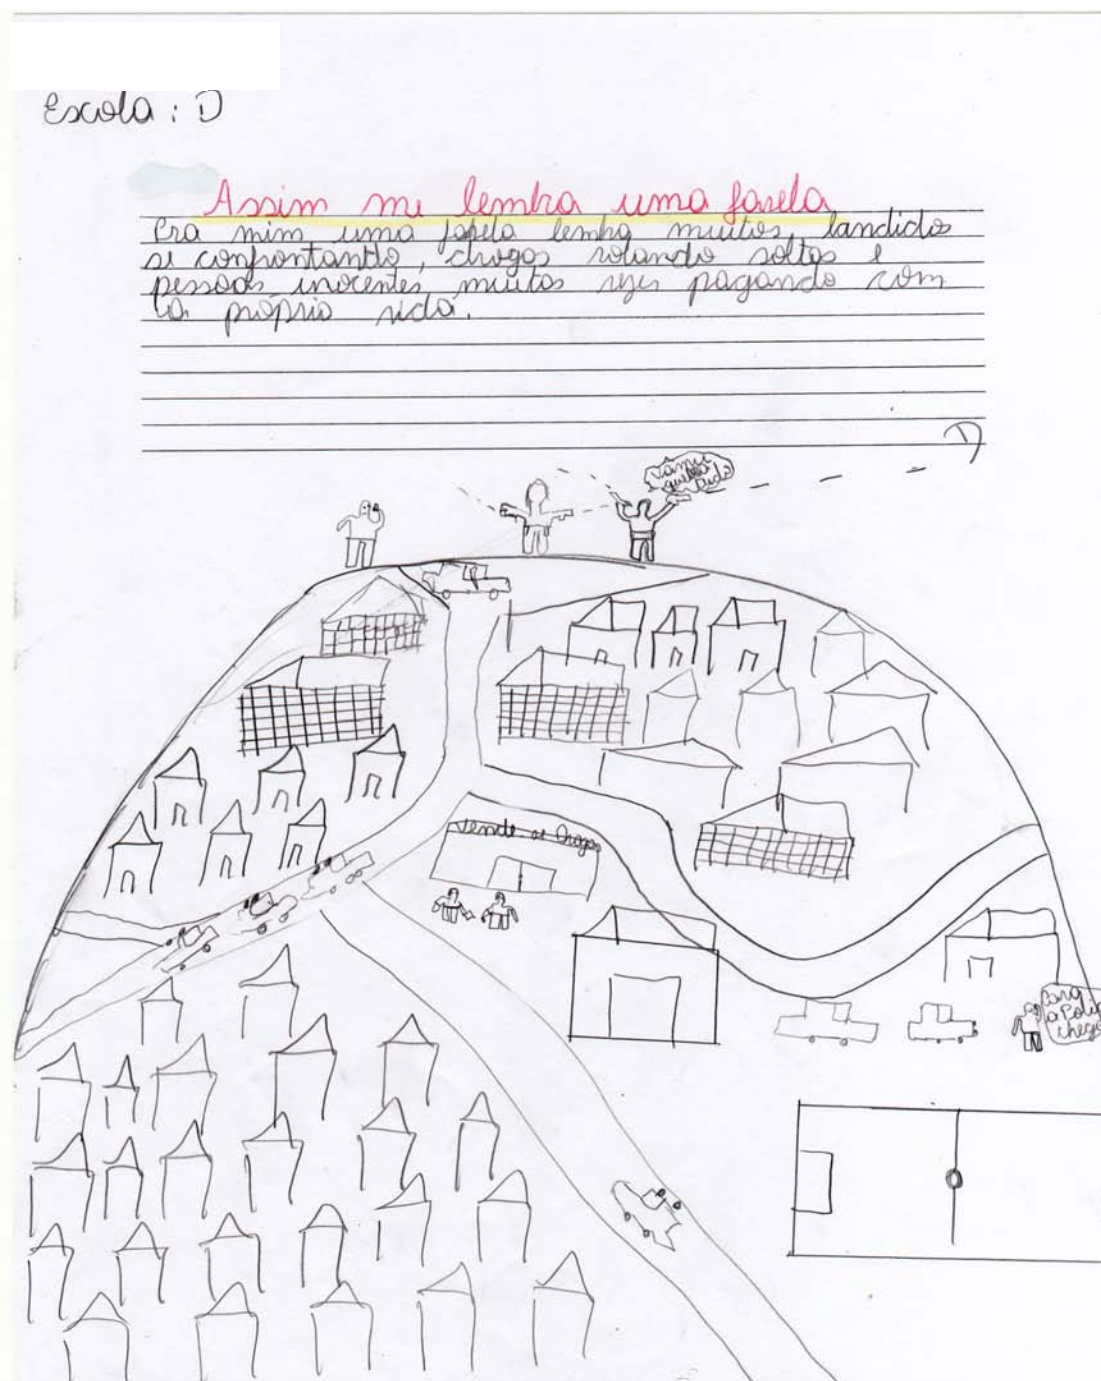 Escola : D
Assim me lembra uma favela
Pra mim uma favela lembra muitos bandidos
se confrontando, drogas rolando soltas e
pessoas inocentes muitas vezes pagando com
a própria vida.
D
Vamu
quebra
tudo
Vende-se Drogas
a Polic
chego